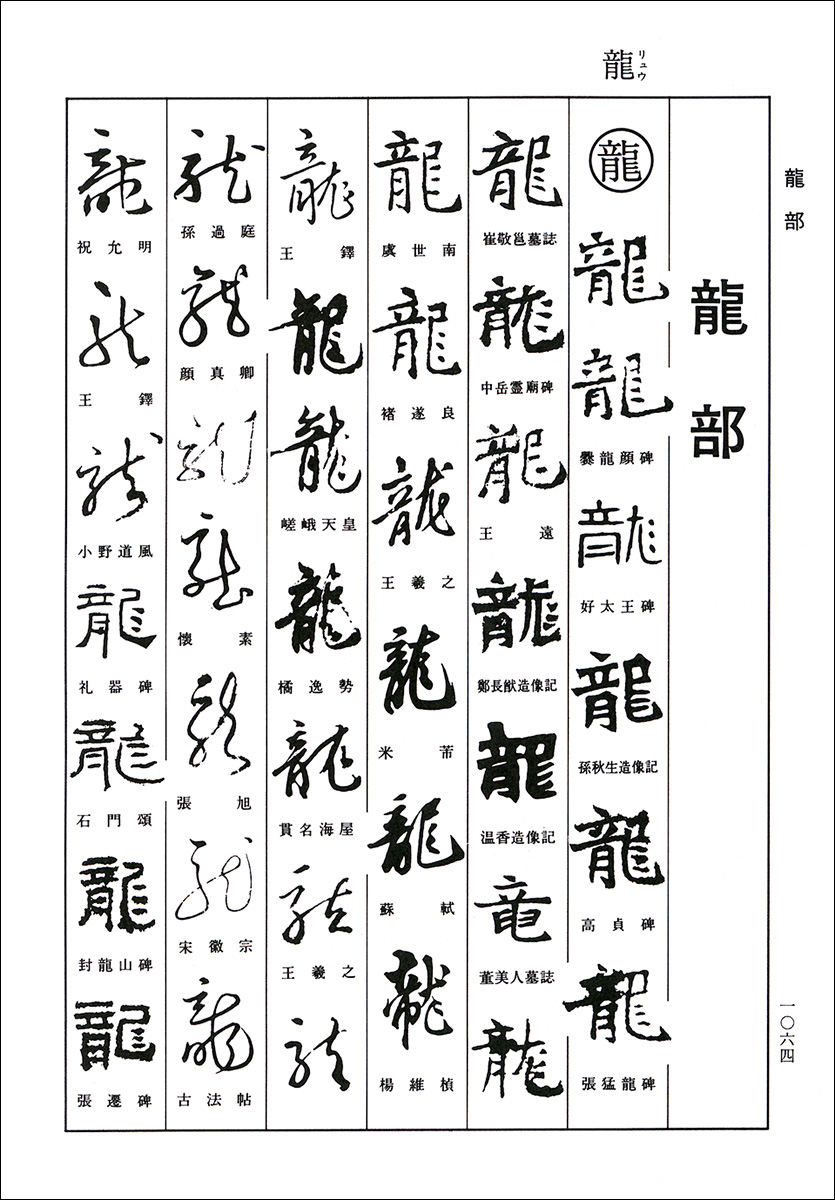 龍
リュウ
龍部
一〇六四
龍部
龍
龍
龍
爨龍顔碑
龍
好太王碑
龍
孫秋生造像記
龍
高貞碑
龍
張猛龍碑
龍
崔敬邕墓誌
龍
中岳霊廟碑
龍
王遠
龍
鄭長猷造像記
龍
温香造像記
竜
董美人墓誌
龍
龍
虞世南
龍
褚遂良
龍
王羲之
龍
米芾
龍
蘇軾
龍
楊維楨
龍
王鐸
龍
龍
嵯峨天皇
龍
橘逸勢
龍
貫名海屋
龍
王羲之
龍
龍
孫過庭
龍
顔真卿
龍
龍
懷素
龍
張旭
龍
宋徽宗
龍
古法帖
龍
祝允明
龍
王鐸
龍
小野道風
龍
礼器碑
龍
石門頌
龍
封龍山碑
龍
張遷碑